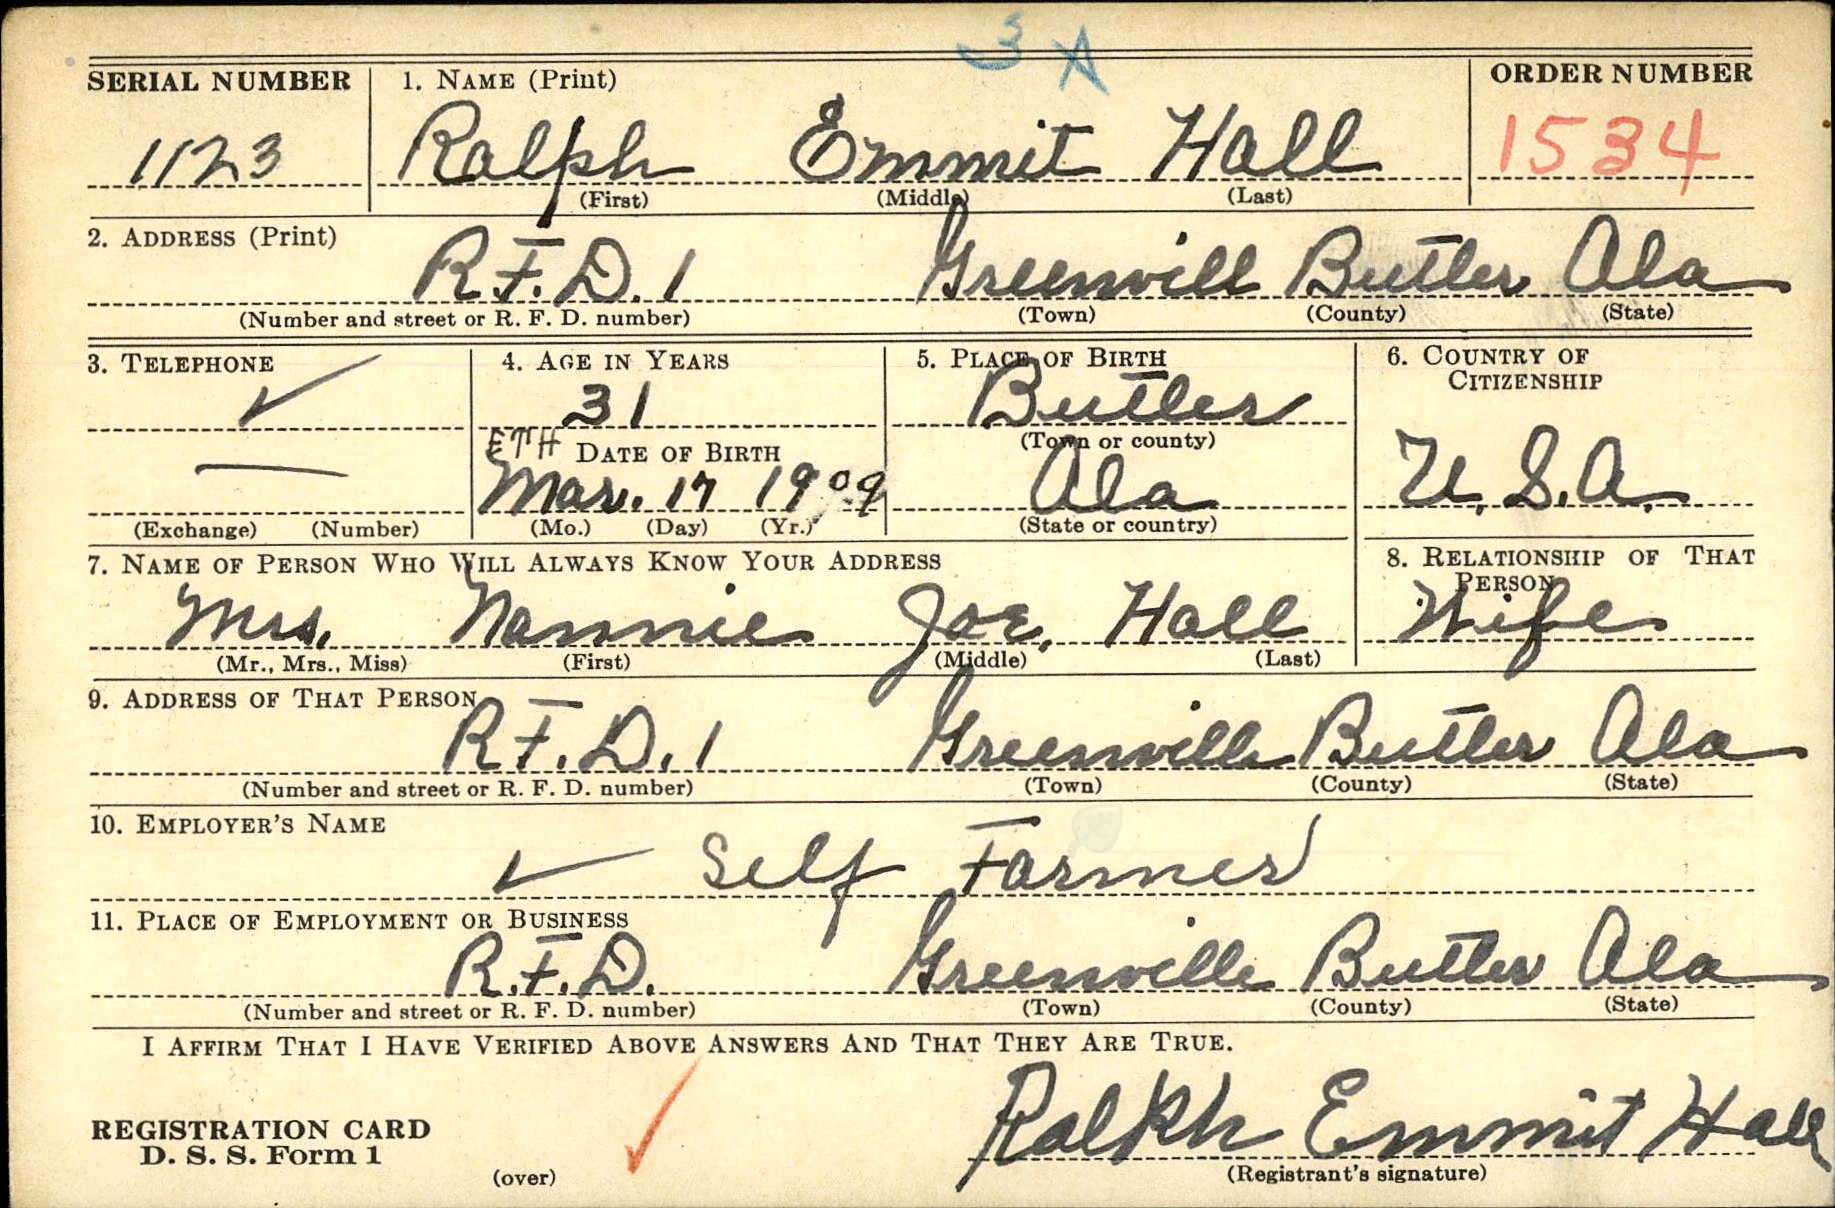 3 A
SERIAL NUMBER 1. NAME (Print) ORDER NUMBER
1123 Ralph Emmit Hall 1534
(First) (Middle) (Last)
2. ADDRESS (Print)
R.F.D. 1 Greenvill Butler Ala
(Number and street or R. F. D. number) (Town) (County) (State)
3. TELEPHONE 4. AGE IN YEARS 5. PLACE OF BIRTH 6. COUNTRY OF CITIZENSHIP
31 Butler
(Town or county)
ETH DATE OF BIRTH
Mar. 17 1909 Ala U.S.A.
(Exchange) (Number) (Mo.) (Day) (Yr.) (State or country)
7. NAME OF PERSON WHO WILL ALWAYS KNOW YOUR ADDRESS 8. RELATIONSHIP OF THAT PERSON
Mrs. Nannie Joe. Hall Wife
(Mr., Mrs., Miss) (First) (Middle) (Last)
9. ADDRESS OF THAT PERSON
R.F.D. 1 Greenville Butler Ala
(Number and street or R. F. D. number) (Town) (County) (State)
10. EMPLOYER'S NAME
Self Farmer
11. PLACE OF EMPLOYMENT OR BUSINESS
R.F.D. Greenville Butler Ala
(Number and street or R. F. D. number) (Town) (County) (State)
I AFFIRM THAT I HAVE VERIFIED ABOVE ANSWERS AND THAT THEY ARE TRUE.
REGISTRATION CARD
D. S. S. Form 1
(over)
Ralph Emmit Hall
(Registrant's signature)